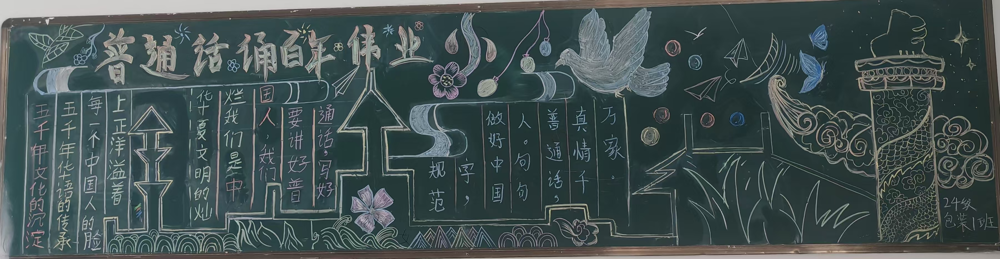 普通话诵百年伟业
五千年文化的沉淀
五千年华语的传承
每一个中国人的脸
上正洋溢着
华夏文明的灿
烂我们是中
国人,我们
要讲好普
通话,写好
规范
字,
做好中国
人。句句
普通话,
真情千
万家.
24级
包装1班